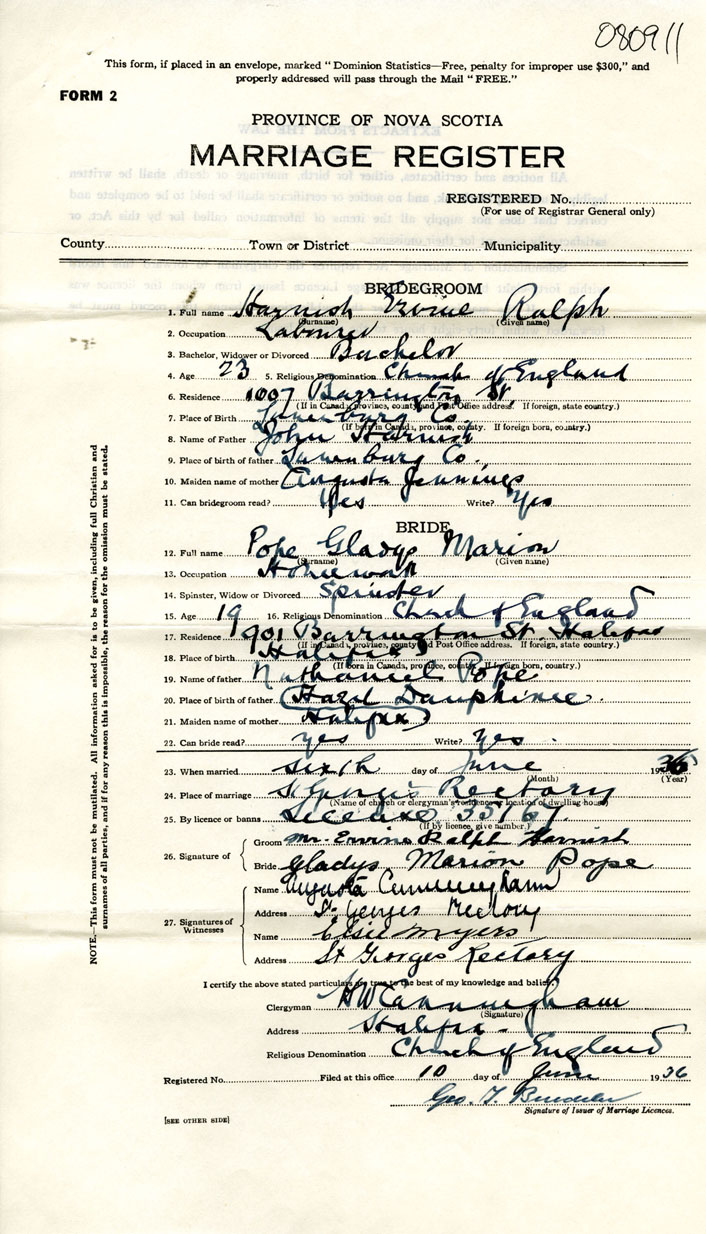 080911
This form, if placed in an envelope, marked "Dominion Statistics—Free, penalty for improper use $300," and
properly addressed will pass through the Mail "FREE."
FORM 2
PROVINCE OF NOVA SCOTIA
MARRIAGE REGISTER
REGISTERED No.
(For use of Registrar General only)
County Town or District Municipality
BRIDEGROOM
1. Full name Harnish Ervine Ralph
(Surname) (Given name)
2. Occupation Labourer
3. Bachelor, Widower or Divorced Bachelor
4. Age 23 5. Religious Denomination Church of England
6. Residence 1007 Barrington St.
(If in Canada, province, county and Post Office address. If foreign, state country.)
7. Place of Birth Lunenburg Co.
(If born in Canada, province, county. If foreign born, country.)
8. Name of Father John Harnish
9. Place of birth of father Lunenburg Co.
10. Maiden name of mother Augusta Jennings
11. Can bridegroom read? Yes Write? Yes
BRIDE
12. Full name Pope Gladys Marion
(Surname) (Given name)
13. Occupation
14. Spinster, Widow or Divorced Spinster
15. Age 19 16. Religious Denomination Church of England
17. Residence 901 Barrington St. Halifax
(If in Canada, province, county and Post Office address. If foreign, state country.)
18. Place of birth Halifax
(If born in Canada, province, county. If foreign born, country.)
19. Name of father Nathaniel Pope
20. Place of birth of father (Hazel Dauphinee
21. Maiden name of mother Halifax)
22. Can bride read? yes Write? Yes.
23. When married sixth day of June 1936
(Month) (Year)
24. Place of marriage St Georges Rectory
(Name of church or clergyman's residence or location of dwelling house)
25. By licence or banns License 33167.
(If by licence, give number.)
26. Signature of
Groom Mr. Ervine Ralph Harnish
Bride Gladys Marion Pope
27. Signatures of Witnesses
Name Augusta Cunningham
Address St. Georges Rectory
Name Elsie Myers
Address St Georges Rectory
I certify the above stated particulars are true to the best of my knowledge and belief.
Clergyman HW Cunningham
(Signature)
Address Halifax.
Religious Denomination Church of England
Registered No. Filed at this office 10 day of June 1936
Geo. T.
Signature of Issuer of Marriage Licences.
[SEE OTHER SIDE]
NOTE.—This form must not be mutilated. All information asked for is to be given, including full Christian and
surnames of all parties, and if for any reason this is impossible, the reason for the omission must be stated.